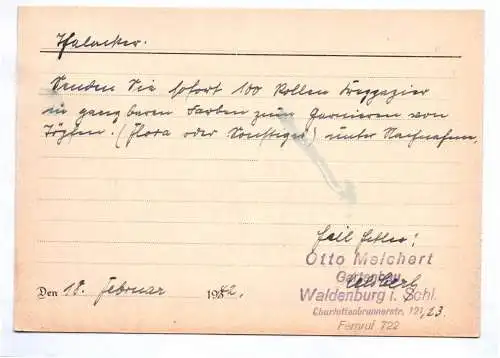 Senden Sie sofort 100 Rollen Kreppapier
in gangbaren Farben zum Garnieren von
Töpfen. (Flora oder Sonstiges) unter Nachnahme.
Heil Hitler!
Otto Melchert
Gartenbau
Waldenburg i. Schl.
Charlottenbrunnerstr. 121, 23.
Fernruf 722
Den 18. Februar 1942.